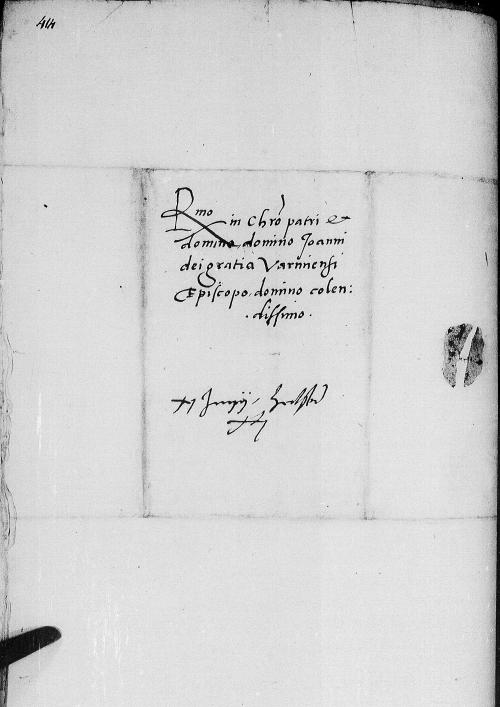 44
Rmo in Chro patri et
domino, domino Joanni
dei gratia Varmiensi
Episcopo, domino colen:
dissimo.